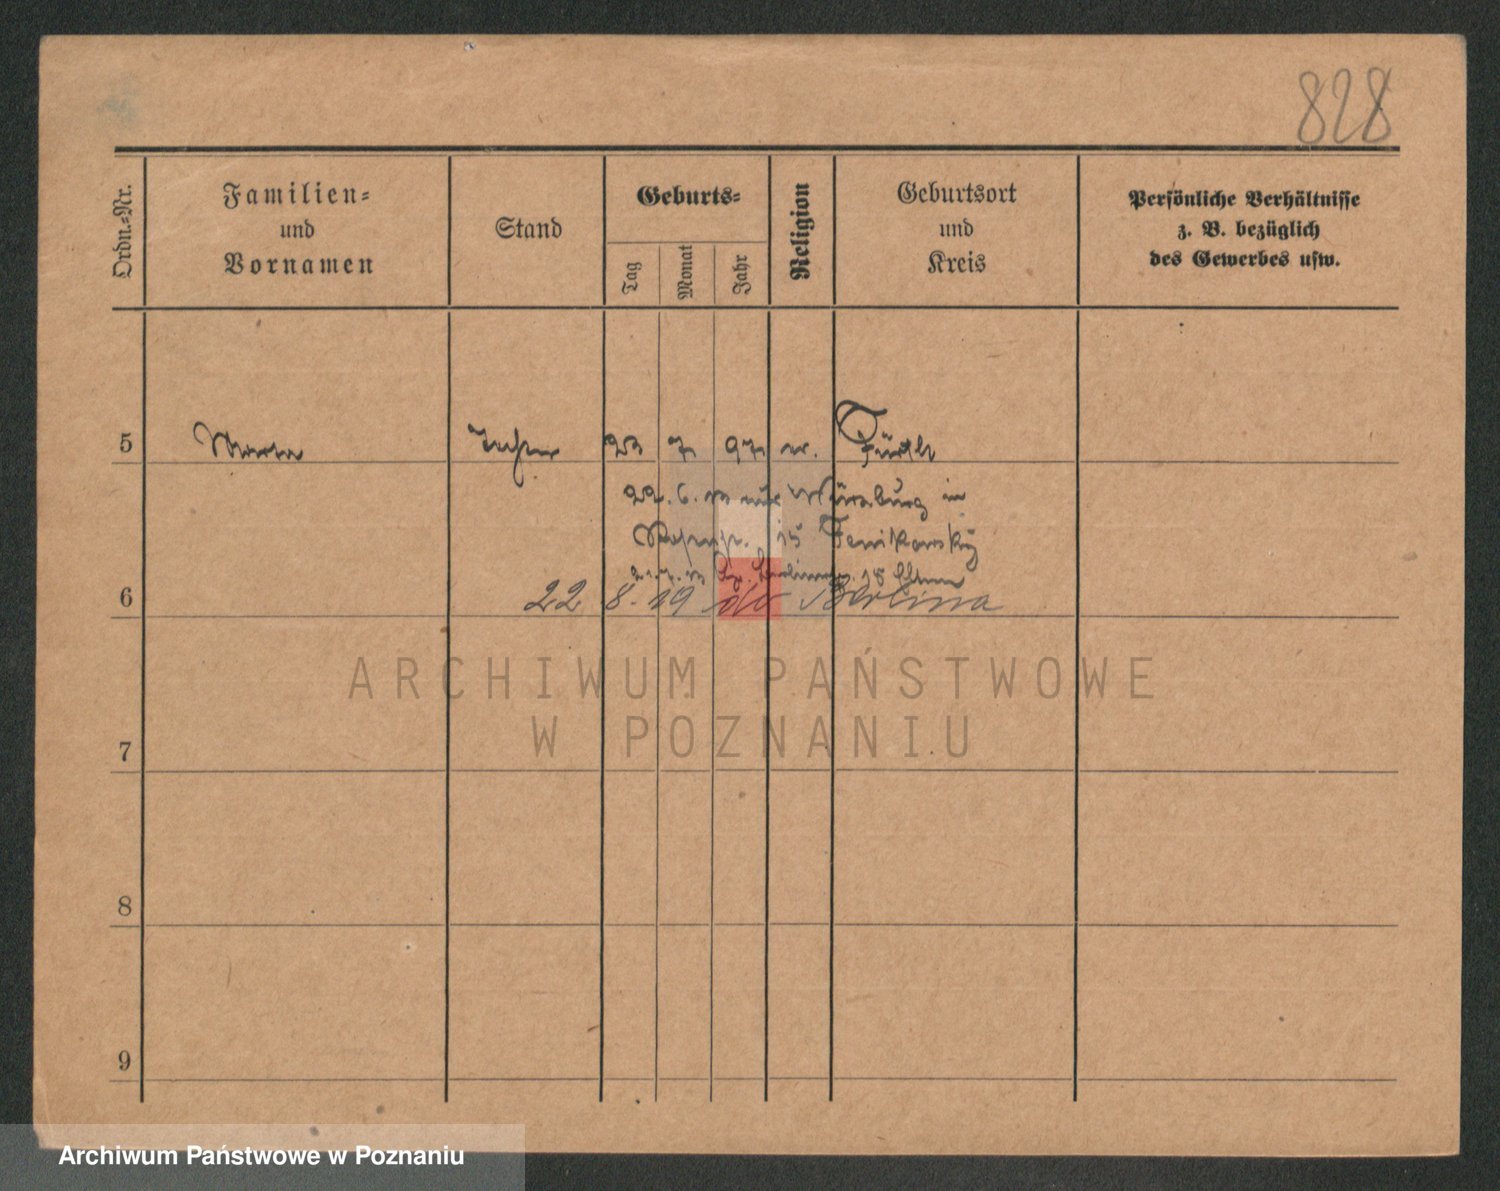 828
Ordn.-Nr.
Familien-
und
Vornamen
Stand
Geburts-
Tag
Monat
Jahr
Religion
Geburtsort
und
Kreis
Persönliche Verhältnisse
z. B. bezüglich
des Gewerbes usw.
5 23 7 97 Fürth
22.6. Würzburg in
15
18
6 22 8. 19 do Berlina
ARCHIWUM PAŃSTWOWE
W POZNANIU
7
8
9
Archiwum Państwowe w Poznaniu